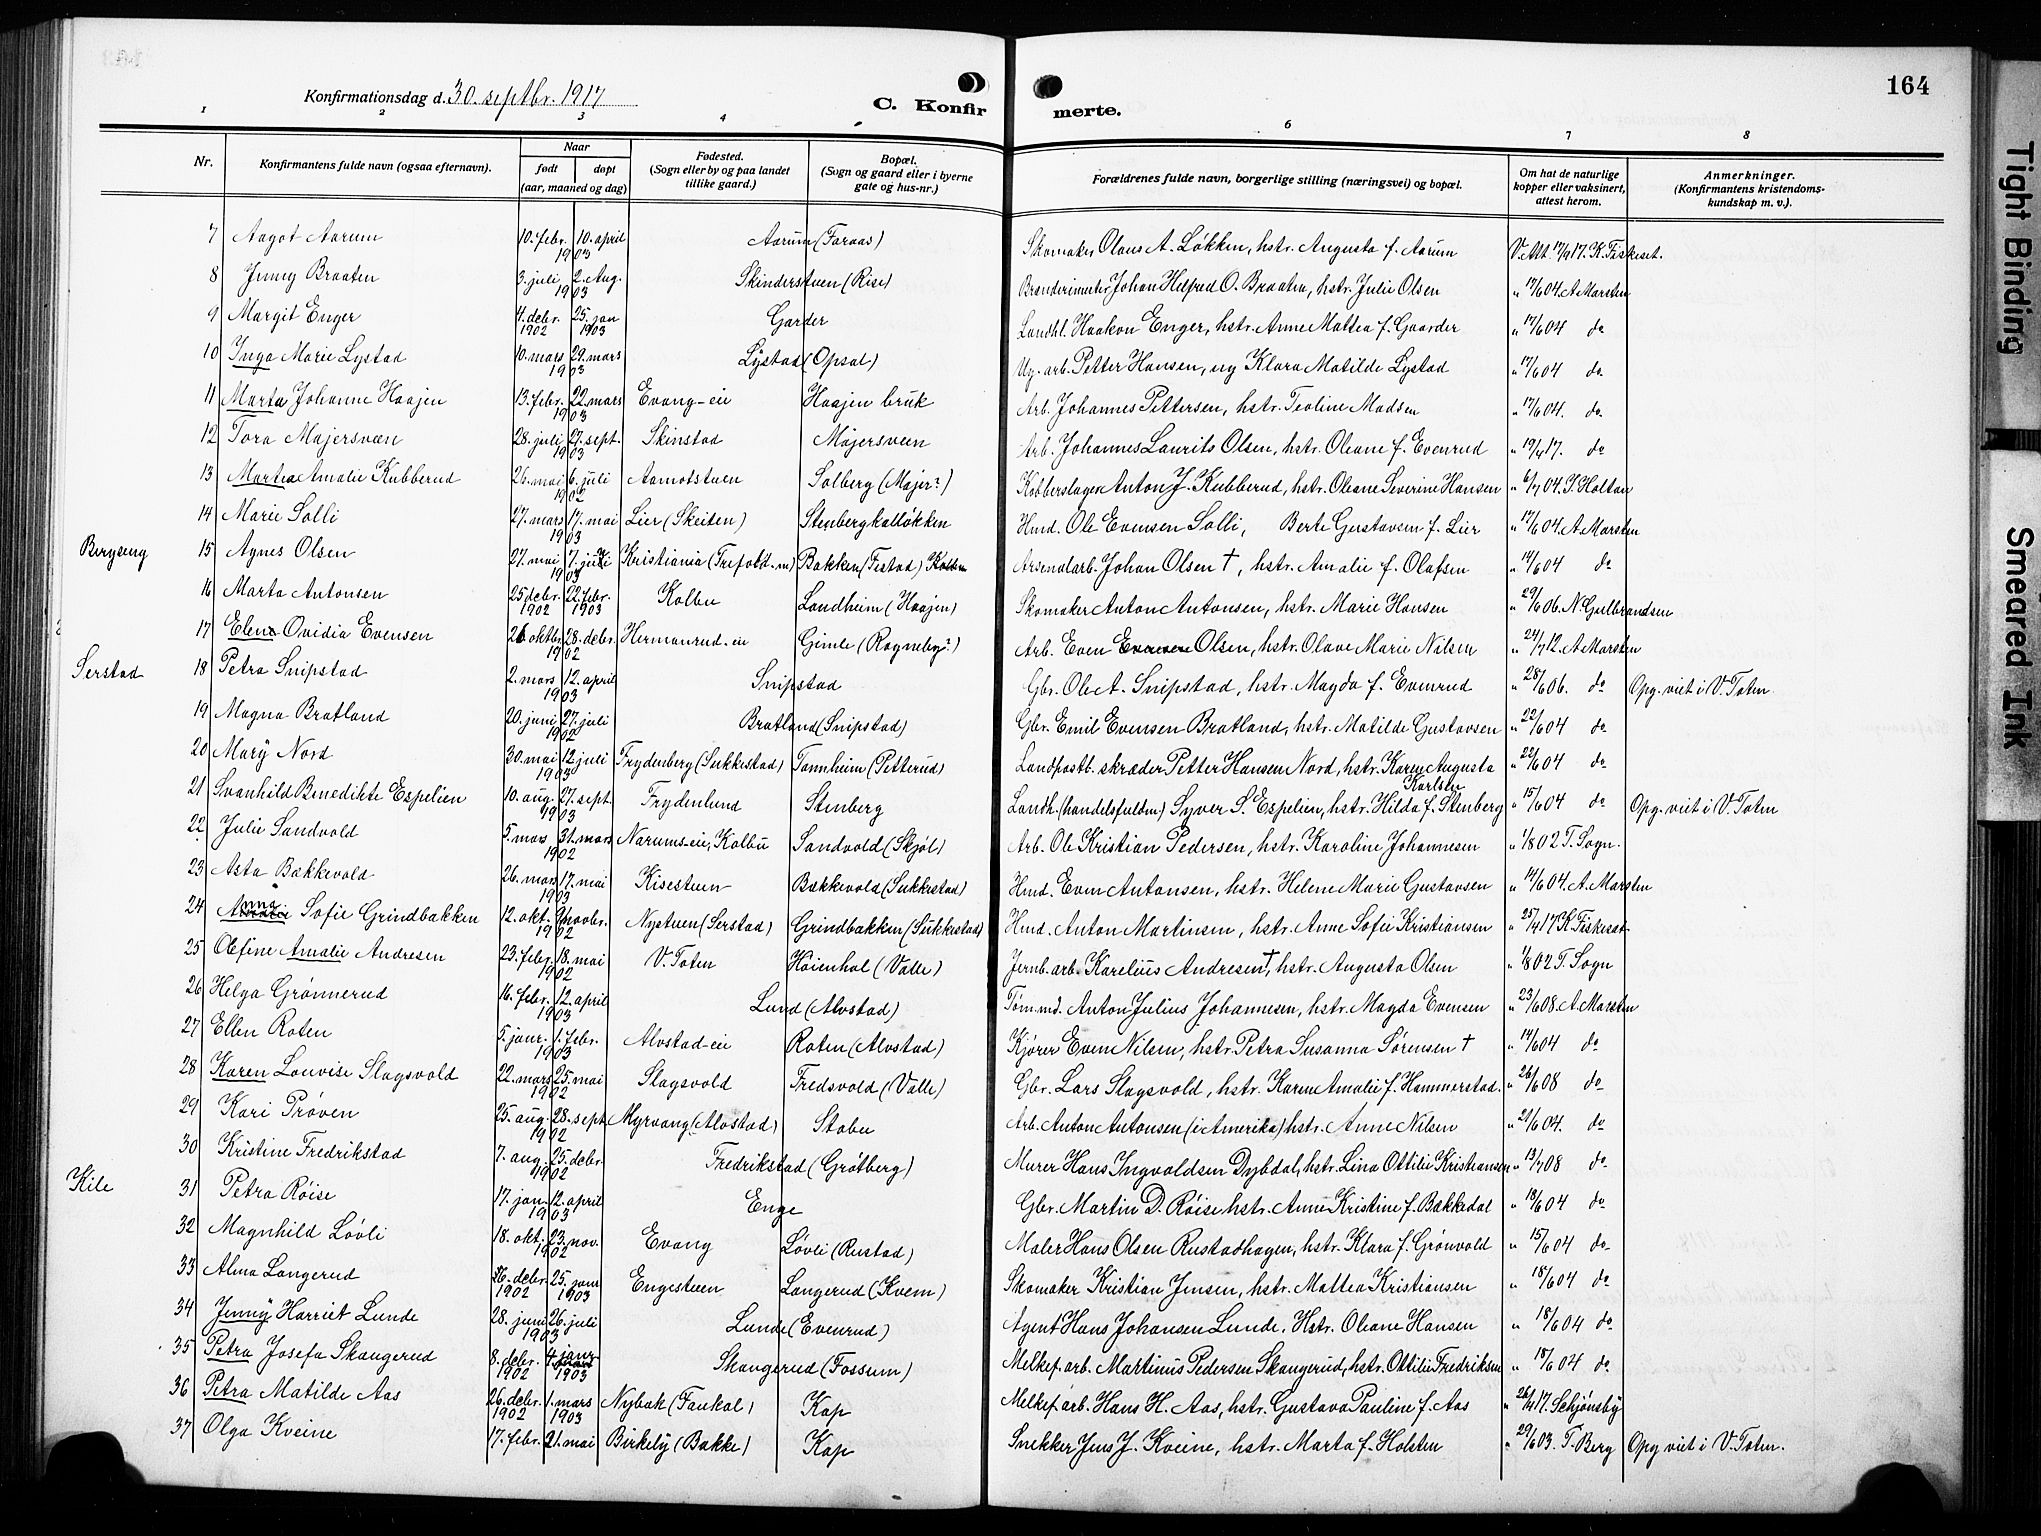 164
Konfirmationsdag d. 30. septbr. 1917
C. Konfirmerte.
1 2 3 4 6 7 8
Nr. Konfirmantens fulde navn (ogsaa efternavn). Naar født døpt (aar, maaned og dag) Fødested. (Sogn eller by og paa landet tillike gaard.) Bopæl. (Sogn og gaard eller i byerne gate og hus-nr.) Forældrenes fulde navn, borgerlige stilling (næringsvei) og bopæl. Om hat de naturlige kopper eller vaksinert, attest herom. Anmerkninger. (Konfirmantens kristendomskundskap m. v.).
7 Aagot Aarum 10. febr. 10. april 1903 Aarum (Faraas) Skomaker Olaus A. Løkken, hstr. Augusta f. Aarum V. Att. 17/9 17. K. Fiskeset.
8 Jenny Braaten 3. juli 2. Aug. 1903 Skinderstuen (Rise) Johan Helfred O. Braaten, hstr. Julie Olsen " 17/6 04. A. Marsten
9 Margit Enger 4. debr. 1902 25. jan 1903 Garder Landhl. Haakon Enger, hstr. Anne Mattea f. Gaarder " 17/6 04 do
10 Inga Marie Lystad 10. mars 29. mars 1903 Lystad (Opsal) Ug. arb. Petter Hansen, ug Klara Matilde Lystad " 17/6 04 do
11 Marta Johanne Haajen 13. febr. 22. mars 1903 Evang-eie Haajen bruk Arb. Johannes Pettersen, hstr. Teoline Madsen " 17/6 04. do
12 Tora Majersveen 28. juli 27. sept. 1903 Skinstad Majersveen Arb. Johannes Laurits Olsen, hstr. Oleane f. Evenrud " 19/4 17. do
13 Martea Amalie Kubberud 26. mai 6. juli 1902 Aamotstuen Solberg (Majer?) Kobberslager Anton J. Kubberud, hstr. Oleane Severine Hansen " 6/7 04. J. Holtan
14 Marie Solli 27. mars 17. mai 1903 Lier (Skeiten) Stenbergkalløkken Hmd. Ole Evensen Solli, Berte Gustavsen f. Lier " 17/6 04. A. Marsten
Bergseng 15 Agnes Olsen 27. mai 7. juli 1903 Kristiania (Trefold.m) Bakken (Fistad) Arsenalarb. Johan Olsen †, hstr. Amalie f. Olafsen " 14/6 04 do
16 Marta Antonsen 25 debr. 1902 22. febr. 1903 Kolbu Landheim (Haajen) Skomaker Anton Antonsen, hstr. Marie Hansen " 29/6 06. N. Gulbrandsen
17 Elen Ovidia Evensen 26 oktbr. 28. debr. 1902 Hermanrud-eie Gimle (Rogneby?) Arb. Even Evensen Olsen, hstr. Olave Marie Nilsen " 24/7 12. A. Marsten
Serstad 18 Petra Snipstad 2. mars 12. april 1903 Snipstad Gbr. Ole A. Snipstad, hstr. Magda f. Evenrud " 28/6 06. do Opg. viet i V. Toten.
19 Magna Bratland 20. juni 27. juli 1902 Bratland (Snipstad) Gbr. Emil Evensen Bratland, hstr. Matilde Gustavsen " 22/6 04 do
20 Mary Nord 30. mai 12. juli 1903 Frydenberg (Sukkestad) Tannheim (Petterud) Landpostb. skræder Petter Hansen Nord, hstr. Karen Augusta Karlsen " 22/6 04 do
21 Svanhild Benedikte Espelien 10. aug. 27. sept. 1903 Frydenlund Stenberg Landh. (handelsfuldm) Syver S. Espelien, hstr. Hilda f. Stenberg " 15/6 04 do Opg. viet i V. Toten
22 Julie Sandvold 5. mars 31. mars 1902 Narums-eie, Kolbu Sandvold (Skjøl) Arb. Ole Kristian Pedersen, hstr. Karoline Johannesen " 1/8 02 T. Sogn.
23 Asta Bækkevold 26. mars 17. mai 1903 Kisestuen Bækkevold (Sukkestad) Hmd. Even Antonsen, hstr. Helene Marie Gustavsen " 14/6 04. A. Marsten
24 Anna Sofie Grindbakken 12. okt. 9. novbr. 1902 Nystuen (Serstad) Grindbakken (Sukkestad) Hmd. Anton Martinsen, hstr. Anne Sofie Kristiansen " 25/4 17 K. Fiskeset
25 Olefine Amalie Andresen 23. febr. 18. mai 1902 V. Toten Høienhol (Valle) Jernb. arb. Karelius Andresen †, hstr. Augusta Olsen " 1/8 02 T. Sogn
26 Helga Grønnerud 16. febr. 12. april 1903 Lund (Alvstad) Tømmd. Anton Julius Johannesen, hstr. Magda Evensen " 23/6 08. A. Marsten
27 Ellen Roten 5. janr. 1. febr. 1903 Alvstad-eie Roten (Alvstad) Kjører Even Nilsen, hstr. Petra Susanna Sørensen † " 14/6 04 do
28 Karen Louvise Slagsvold 22. mars 25. mai 1902 Slagsvold Fredsvold (Valle) Gbr. Lars Slagsvold, hstr. Karen Amalie f. Hammerstad. " 26/6 08 do
29 Kari Prøven 25. aug. 28. sept. 1902 Myrvang (Alvstad) Stabu Arb. Anton Antonsen (i Amerika) hstr. Anne Nilsen " 21/6 04. do
30 Kristine Fredrikstad 7. aug. 25. debr. 1902 Fredrikstad (Grøtberg) Murer Hans Ingvoldsen Dybdal, hstr. Lina Ottilie Kristiansen " 13/7 08 do
Kile 31 Petra Røise 17. jan. 12. april 1903 Enge Gbr. Martin D. Røise hstr. Anne Kristine f. Bækkedal " 18/6 04 do
32 Magnhild Løvli 18. okt. 23. nov. 1902 Evang Løvli (Rustad) Maler Hans Olsen Rustadhagen, hstr. Klara f. Grønvold " 15/6 04 do
33 Alma Langerud 26. debr. 1902 25. janr 1903 Engestuen Langerud (Kvem) Skomaker Kristian Jensen, hstr. Mattea Kristiansen " 18/6 04 do
34 Jenny Harriet Lunde 28. juni 26. juli 1903 Lunde (Evenrud) Agent Hans Johansen Lunde, Hstr. Oleane Hansen " 18/6 04 do
35 Petra Josefa Skangerud 8. debr. 1902 4. janr 1903 Skangerud (Fossum) Melkef. arb. Martinus Pedersen Skangerud, hstr. Ottilie Fredriksen " 18/6 04 do
36 Petra Matilde Aas 26. debr. 1902 1. mars 1903 Nybak (Faukal) Kap Melkef. arb. Hans H. Aas, hstr. Gustava Pauline f. Aas " 26/4 17. Schjønsby
37 Olga Kveine 17. febr. 21. mai Birkely (Bakke) Kap Snekker Jens J. Kveine, hstr. Marta f. Holsten " 29/6 03. T. Berg Opg viet i V. Toten.
Tight Binding
Smeared Ink